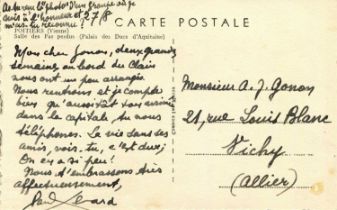 As-tu vu la photo d'un groupe où je
suis à l'honneur et 27/8
m'as-tu reconnu?
CARTE POSTALE
POITIERS (Vienne)
Salle des Pas perdus (Palais des Ducs d'Aquitaine)
Mon cher Gonon, deux grandes
semaines au bord du Clain
nous ont un peu arrangés.
Nous rentrons et je compte
bien qu'aussitôt vous
dans la capitale tu nous
téléphones. La vie sans ses
amis, vois-tu, c'est dur;
On en a si peu!
Nous t'embrassons très
affectueusement,
Paul
Monsieur A. J. Gonon
21, rue Louis Blanc
Vichy
(Allier)